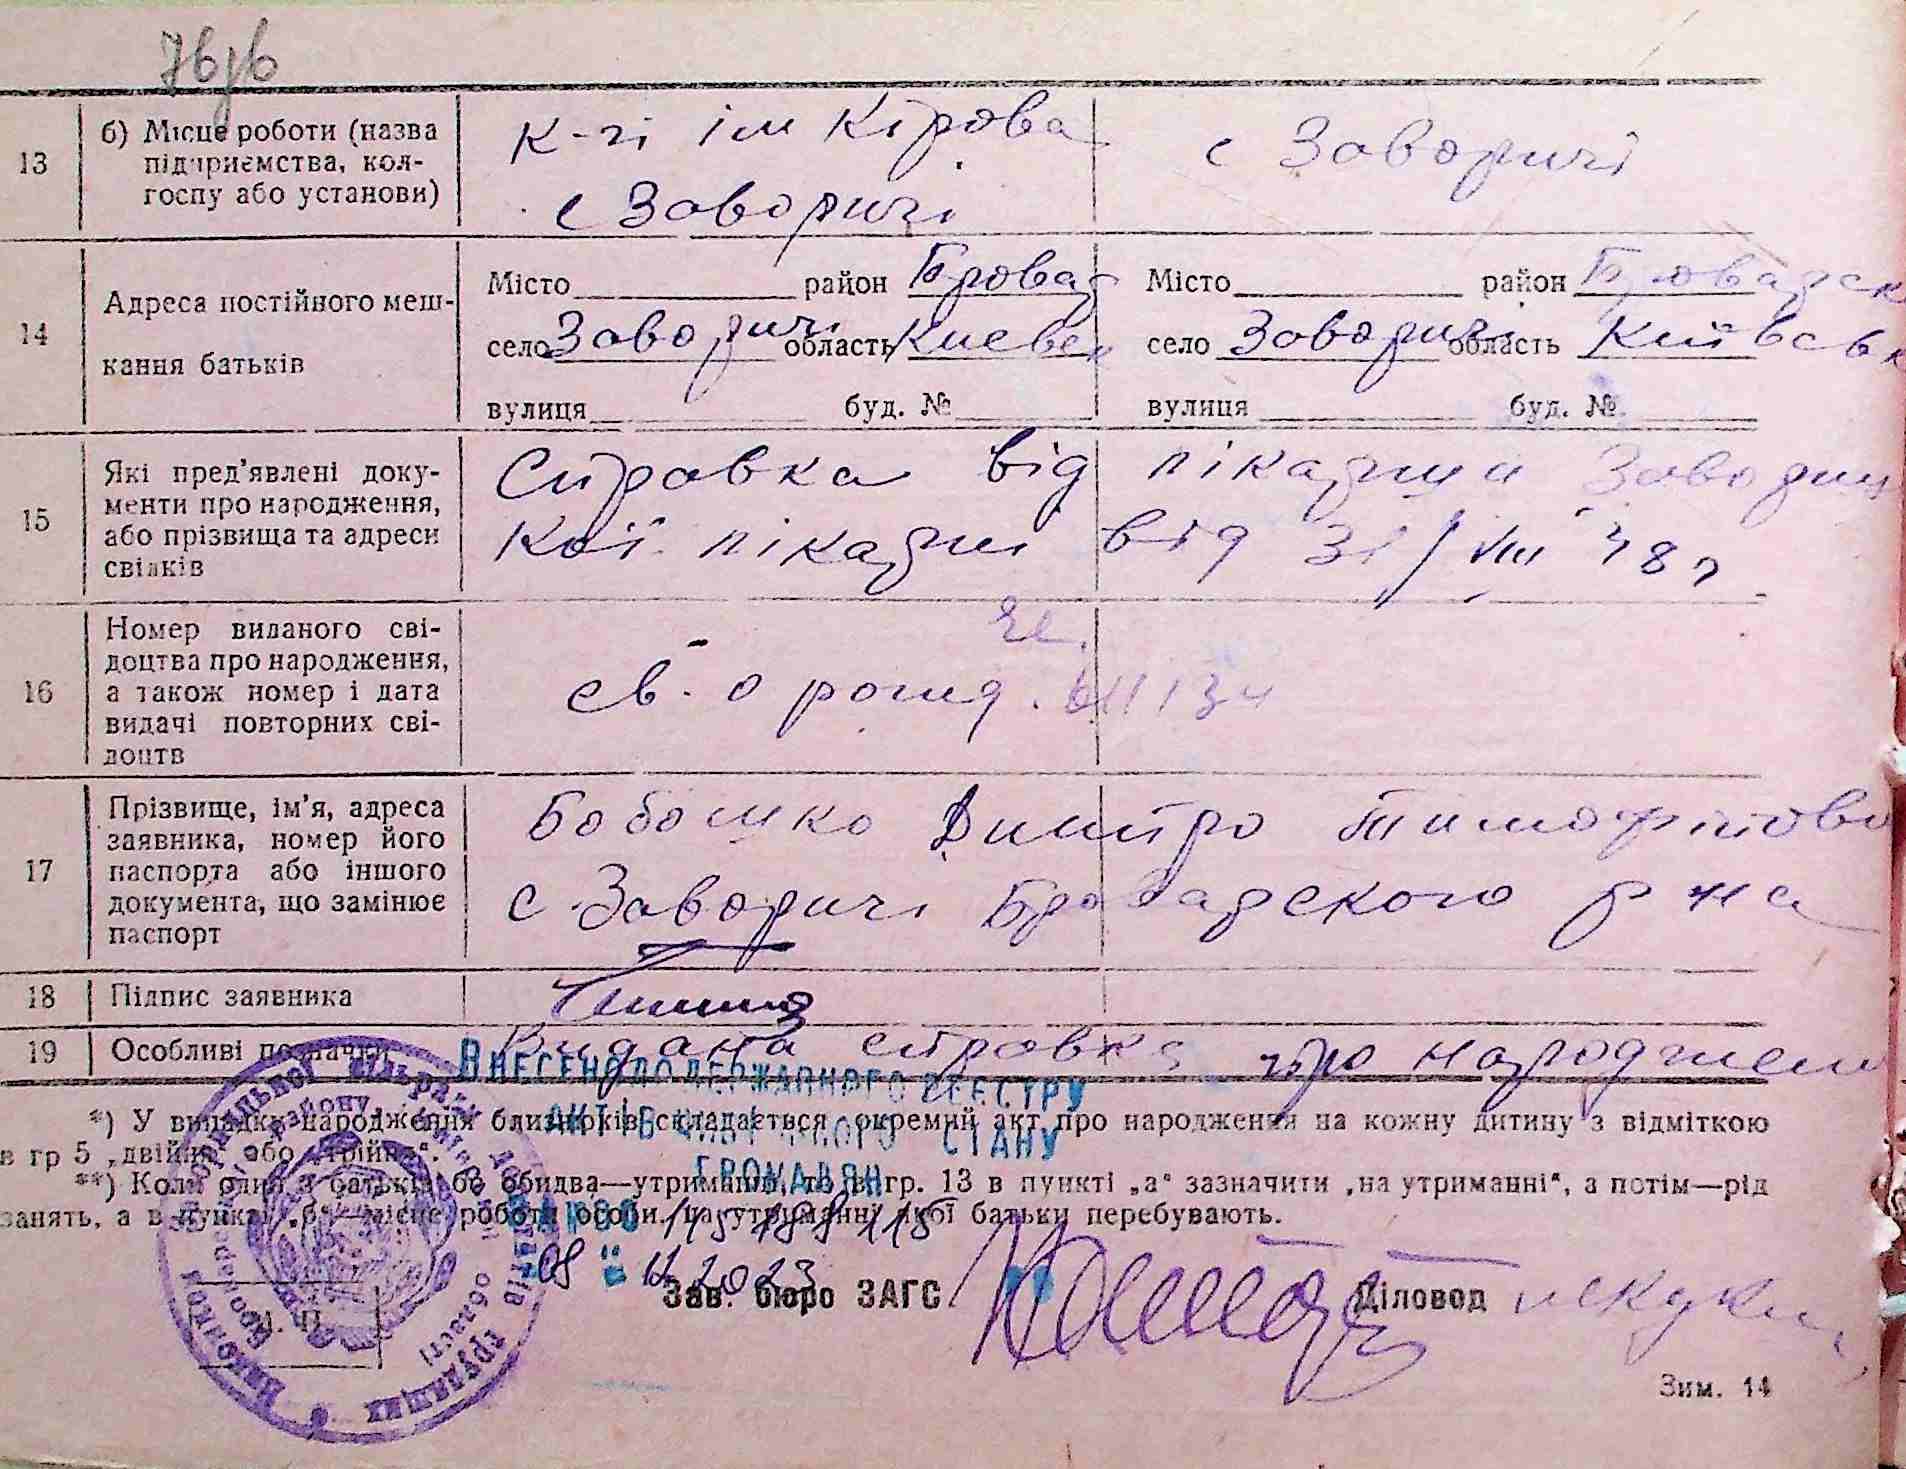 13
б) Місце роботи (назва
підприємства, кол-
госпу або установи)
к-гі ім Кірова
с Заворичі
с Заворичі
14
Адреса постійного меш-
кання батьків
Місто район Бровар
село Заворичі область Киевск
вулиця буд. №
Місто район Броварск
село Заворичі область Київськ
вулиця буд. №
15
Які пред'явлені доку-
менти про народження,
або прізвища та адреси
свідків
Справка від лікарні Завориц
кої лікарні від 31/VIII 48 г
16
Номер виданого сві-
доцтва про народження,
а також номер і дата
видачі повторних сві-
доцтв
св. о рожд.
17
Прізвище, ім'я, адреса
заявника, номер його
паспорта або іншого
документа, що замінює
паспорт
Дмитро Тимофійово
с Заворичі Броварского р на
18
Підпис заявника
19
Особливі позначки
Видана справка про народжен
ВНЕСЕНО ДО ДЕРЖАВНОГО РЕЄСТРУ
АКТІВ ЦИВІЛЬНОГО СТАНУ
ГРОМАДЯН
*) У випадку народження близнюків складається окремий акт про народження на кожну дитину з відміткою
в гр 5 „двійня" або „трійня".
**) Коли один з батьків або обидва—утриманці, то в гр. 13 в пункті „а" зазначити „на утриманні", а потім—рід
занять, а в пункті „б"—місце роботи особи, на утриманні якої батьки перебувають.
08 12 2023
Зав. бюро ЗАГС
Діловод
М. П.
Зим. 14